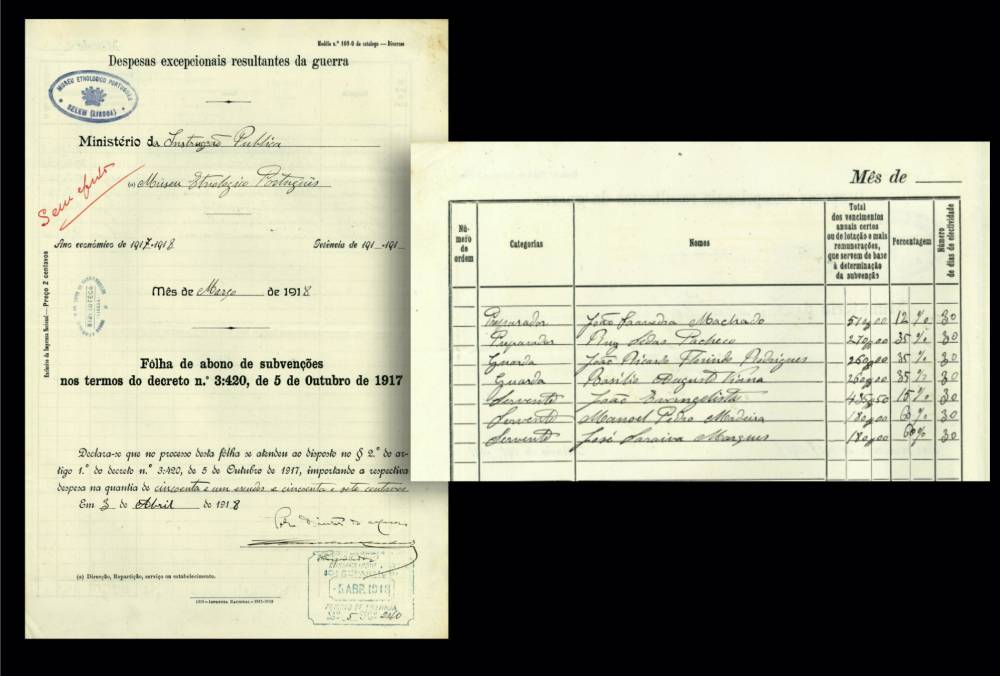 Modêlo n.º 169-G do catálogo — Diversos
Despesas excepcionais resultantes da guerra
MUSEU ETHNOLOGICO PORTUGUÊS
BELEM (LISBOA)
Ministério da Instrução Publica
Sem efeito
(a) Museu Etnologico Português
Ano económico de 1917-1918 Gerência de 191_-191_
Exclusivo da Imprensa Nacional — Preço 2 centavos
BIBLIOTECA
Mês de Março de 1918
Fôlha de abono de subvenções
nos termos do decreto n.º 3:420, de 5 de Outubro de 1917
Declara-se que no processo desta fôlha se atendeu ao disposto no § 2.º do ar-
tigo 1.º do decreto n.º 3:420, de 5 de Outubro de 1917, importando a respectiva
despesa na quantia de cincoenta e um escudos e cincoenta e sete centavos
Em 3 de Abril de 1918
Pelo Director
(a) Direcção, Repartição, serviço ou estabelecimento.
-5 ABR. 1918
240
IMPRENSA NACIONAL
Mês de
Número de ordem
Categorias
Nomes
Total dos vencimentos anuais certos ou de lotação e mais remunerações, que servem de base à determinação da subvenção
Percentagem
Número de dias de efectividade
Preparador João Saavedra Machado 510$00 12 % 30
Preparador Ruy Pacheco 270$00 35 % 30
Guarda João Ricardo Rodrigues 260$00 35 % 30
Guarda Basilio Augusto 260$00 35 % 30
Servente João Evangelista 15 % 30
Servente Manoel Pedro Madeira 180$00 60 % 30
Servente José Saraiva Marques 180$00 60 % 30